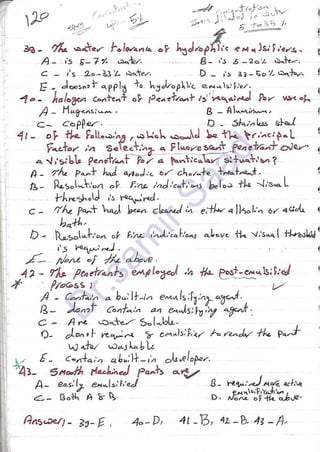 120
5%
5 to 35%
39- The water tolerance of hydrophlic emulsifiers.
A- is 5-7% water. B- is 5-20% water.
C- is 20-33% water. D- is 33-50% water.
E- doesnot apply to hydrophlic emulsifier.
40- halogen content of Penetrant is required for use of
A- Magensium. B- Aluminum.
C- Copper. D- Stainless steel
41- of the following, which would be the Principal
Factor in selecting a Fluorescent Penetrant over
a Visible Penetrant for a particular situation?
A- The Part had anodic or chromate treatment.
B- Resolution of Fine indications below the Visual
threshold is required.
C- The part had been cleaned in either alkalin or acide
bath.
D- Resolution of Fine indications above the Visual threshold
is required.
E- None of the above.
42- The Penetrants employed in the post-emulsified
Process:
A- Contain a built-in emulsifying agent.
B- donot Contain an emulsifying agent.
C- Are water Soluble.
D- donot require emulsifier to render the part
Water Washable
E- Contain abuilt-in developer.
43- Smooth Machined parts are
A- easily emulsified B- required more active
emulsification.
C- Both A & B D- None of the above.
Answer:- 39-E. 40-D, 41-B, 42-B, 43-A.
Dr. Samir Saad